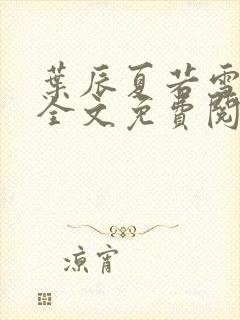 葉辰夏若雪
全文免費閱
涼宵